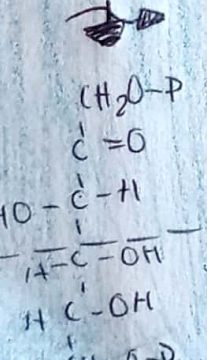 CH₂O-P
C=O
HO-C-H
H-C-OH
H C-OH